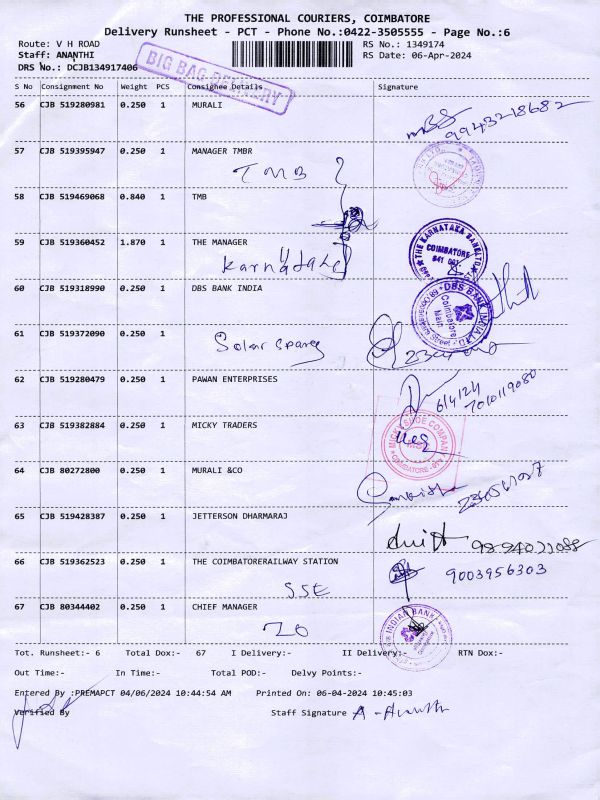 THE PROFESSIONAL COURIERS, COIMBATORE
Delivery Runsheet - PCT - Phone No.:0422-3505555 - Page No.:6
Route: V H ROAD RS No.: 1349174
Staff: ANANTHI RS Date: 06-Apr-2024
DRS No.: DCJB134917406
BIG BAG DELIVERY
S No Consignment No Weight PCS Consignee Details Signature
56 CJB 519280981 0.250 1 MURALI
9943218682
57 CJB 519395947 0.250 1 MANAGER TMBR
TMB
58 CJB 519469068 0.840 1 TMB
59 CJB 519360452 1.870 1 THE MANAGER
Karnataka
THE KARNATAKA BANK LTD.
COIMBATORE
641 001
60 CJB 519318990 0.250 1 DBS BANK INDIA
DBS BANK INDIA LTD
Coimbatore
Main
61 CJB 519372090 0.250 1
Solar spares
62 CJB 519280479 0.250 1 PAWAN ENTERPRISES
6/4/24
7010119080
63 CJB 519382884 0.250 1 MICKY TRADERS
MICKY SHOE COMPANY
COIMBATORE
64 CJB 80272800 0.250 1 MURALI &CO
65 CJB 519428387 0.250 1 JETTERSON DHARMARAJ
66 CJB 519362523 0.250 1 THE COIMBATORERAILWAY STATION
SSE
9003956303
67 CJB 80344402 0.250 1 CHIEF MANAGER
ZO
INDIAN BANK
Tot. Runsheet:- 6 Total Dox:- 67 I Delivery:- II Delivery:- RTN Dox:-
Out Time:- In Time:- Total POD:- Delvy Points:-
Entered By :PREMAPCT 04/06/2024 10:44:54 AM Printed On: 06-04-2024 10:45:03
Verified By Staff Signature A-Ananthi